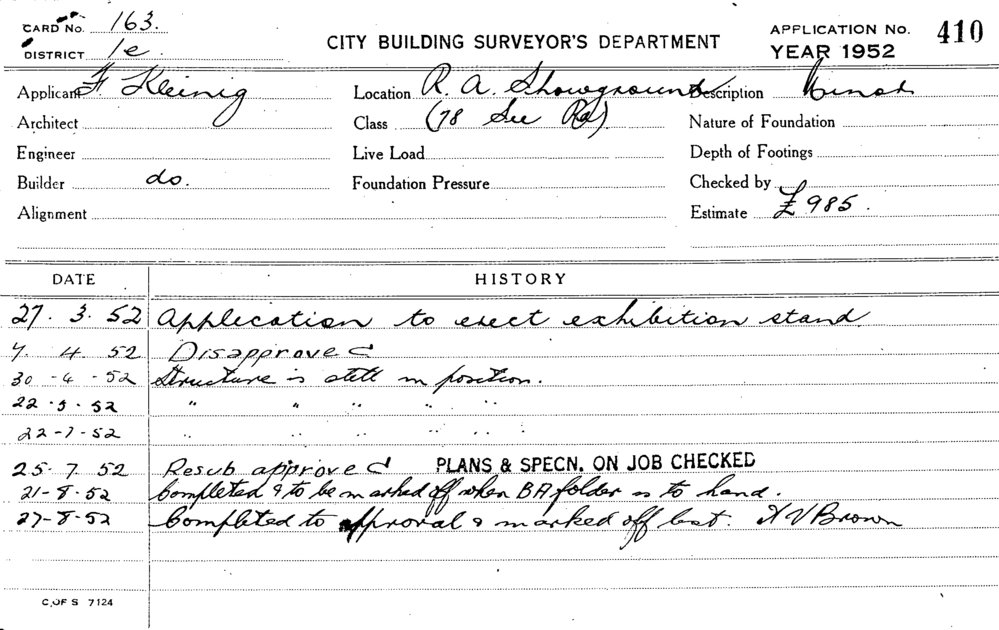 CARD No. 163.
DISTRICT 1e.
CITY BUILDING SURVEYOR'S DEPARTMENT
APPLICATION No. 410
YEAR 1952
Applicant F Kleinig
Location R. A. Showground
Description Minor
Architect
Class (78 See Rd)
Nature of Foundation
Engineer
Live Load
Depth of Footings
Builder do.
Foundation Pressure
Checked by
Alignment
Estimate £985.
DATE HISTORY
27. 3. 52 Application to erect exhibition stand
7. 4. 52 Disapproved
30 -4 -52 Structure is still in position.
22 . 5 . 52 " " " " "
22 -7 -52 " " " " "
25. 7. 52 Resub approved PLANS & SPECN. ON JOB CHECKED
21-8-52 Completed & to be marked off when BA folder is to hand.
27-8-52 Completed to approval & marked off list. Brown
C. OF S 7124